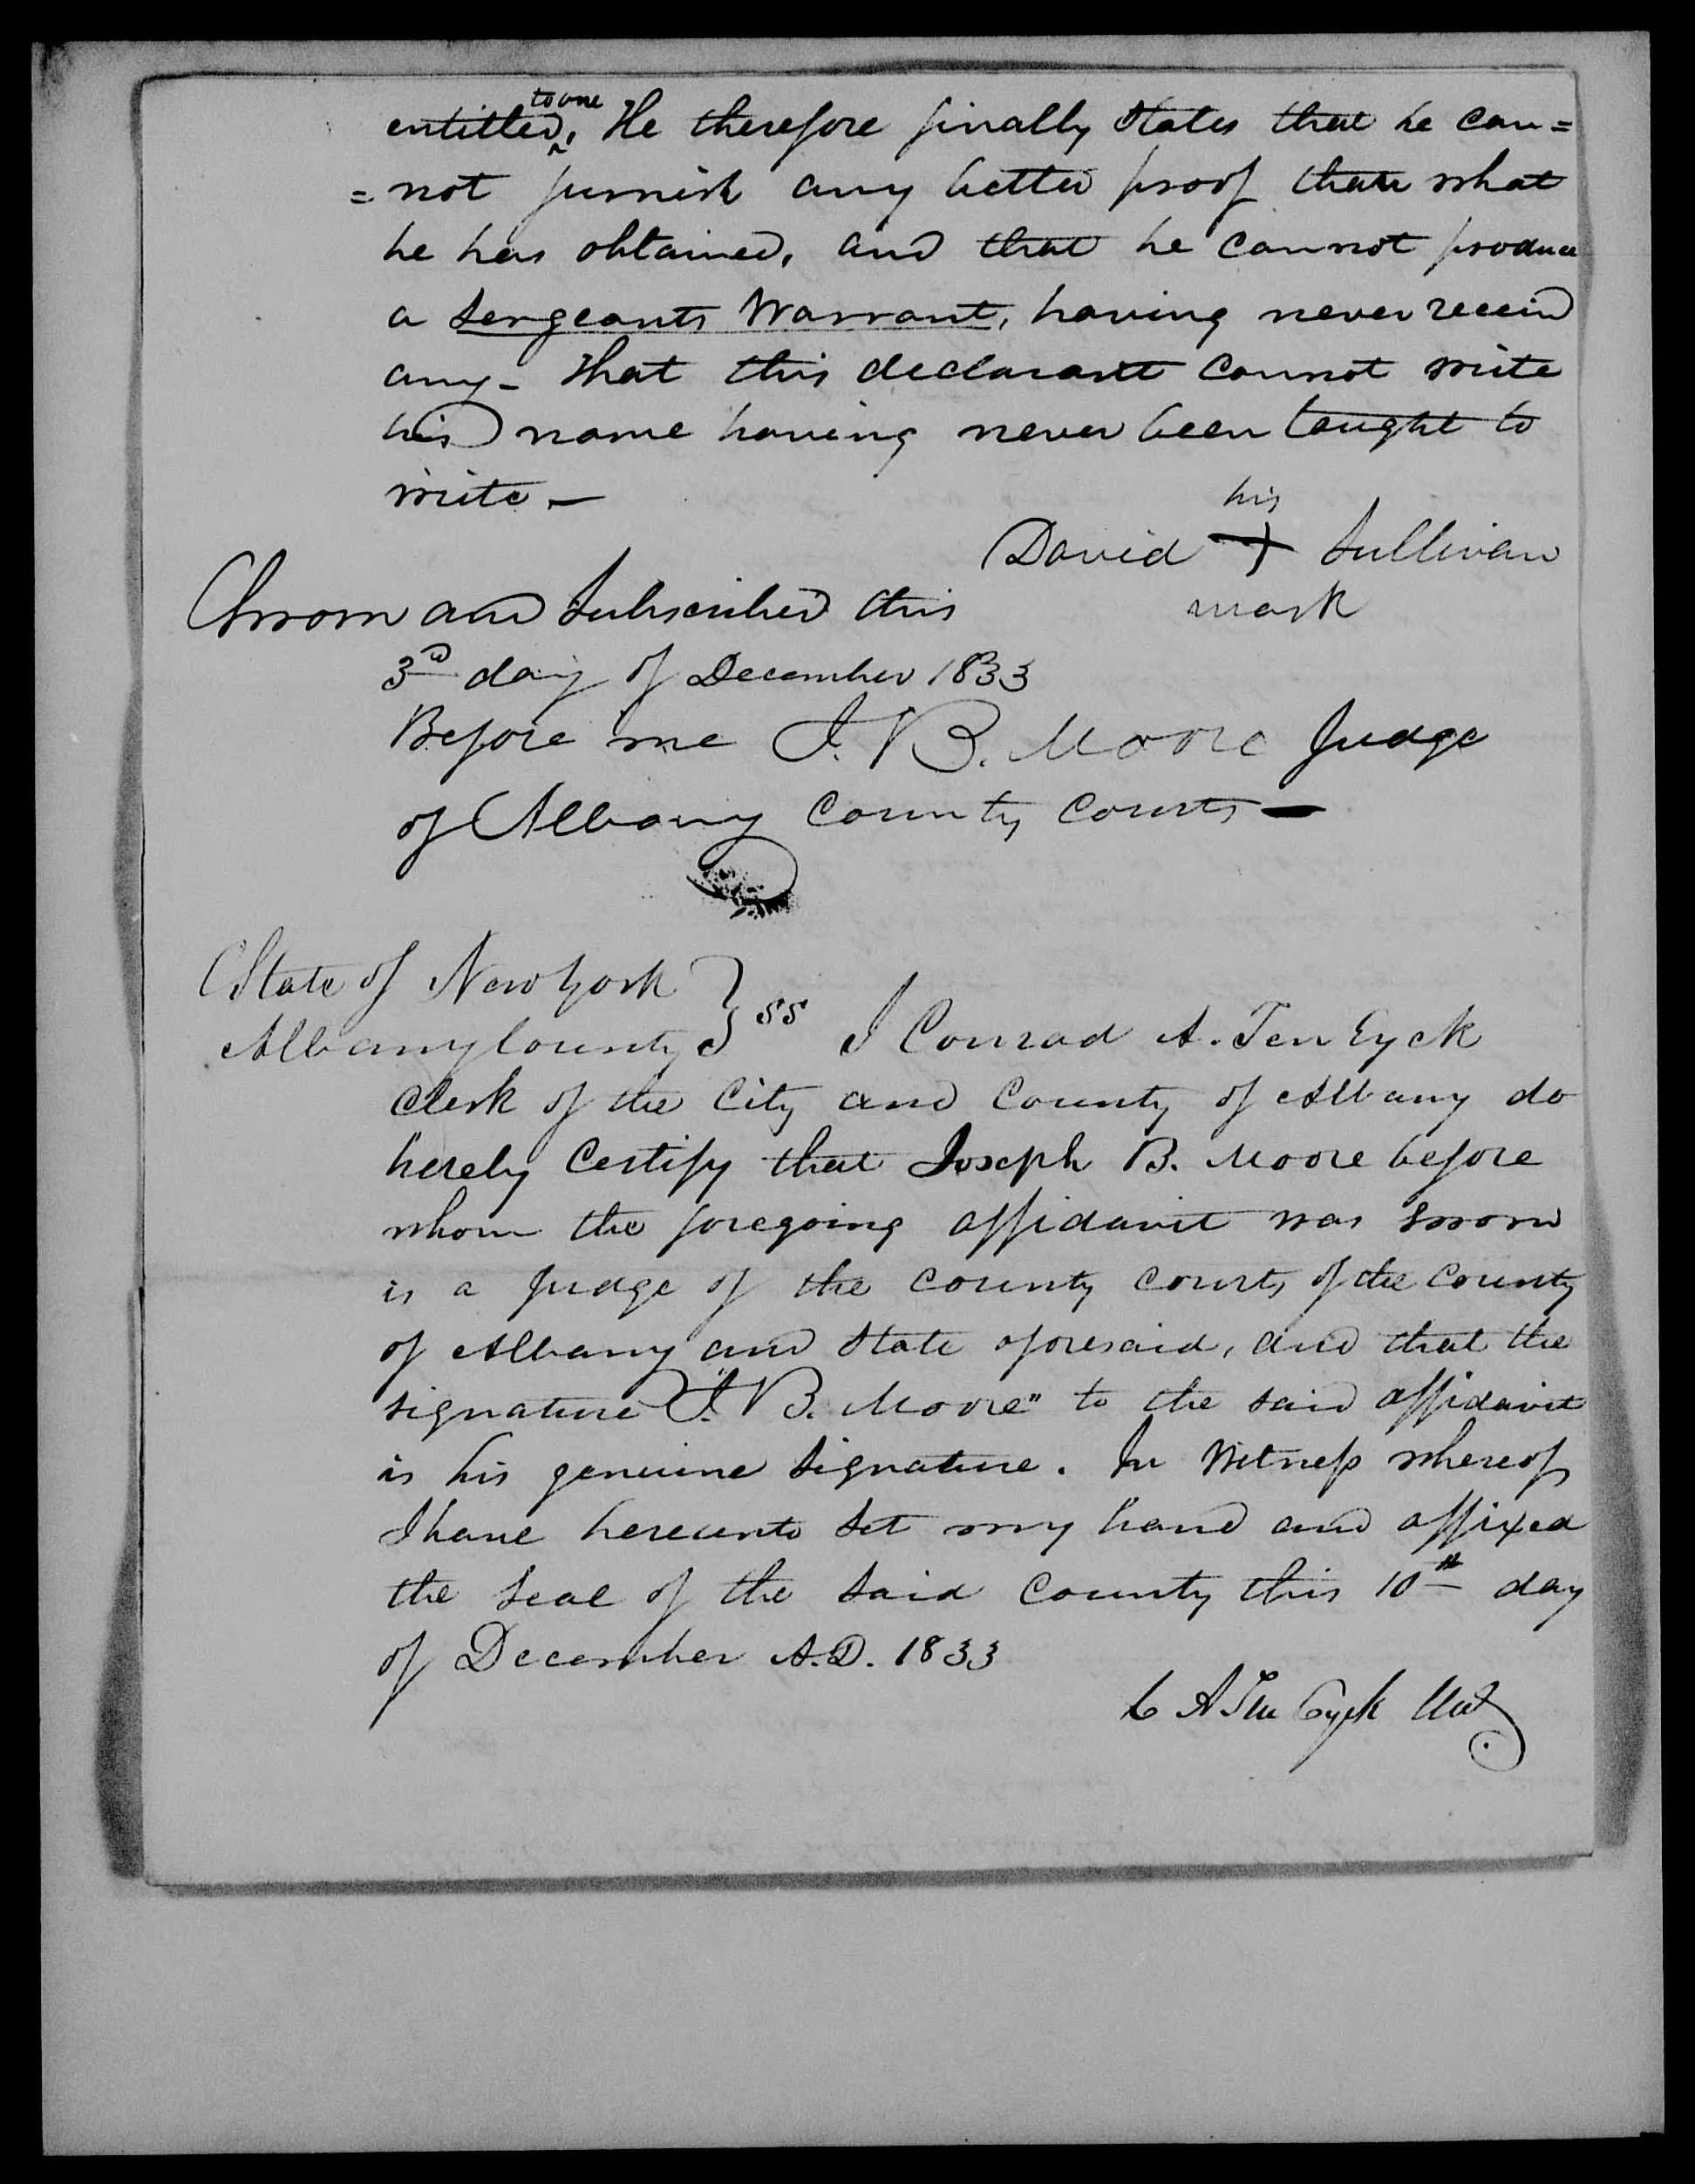 to one
entitled, He therefore finally states that he can=
=not furnish any better proof than what
he has obtained, and that he cannot produce
a Sergeants Warrant, having never receivd
any - that this declarant cannot write
his name having never been taught to
write -
his
David + Sullivan
mark
Sworn and Subscribed this
3rd day of December 1833
Before me J. B. Moore Judge
of Albany County Courts -
State of New York
Albany County } ss I Conrad A. Ten Eyck
Clerk of the City and County of Albany do
hereby Certify that Joseph B. Moore before
whom the foregoing affidavit was sworn
is a Judge of the County Courts of the County
of Albany and State aforesaid, and that the
signature "J. B. Moore" to the said affidavit
is his genuine signature. In Witness whereof
I have hereunto set my hand and affixed
the seal of the said County this 10th day
of December A.D. 1833
C A Ten Eyck Clk